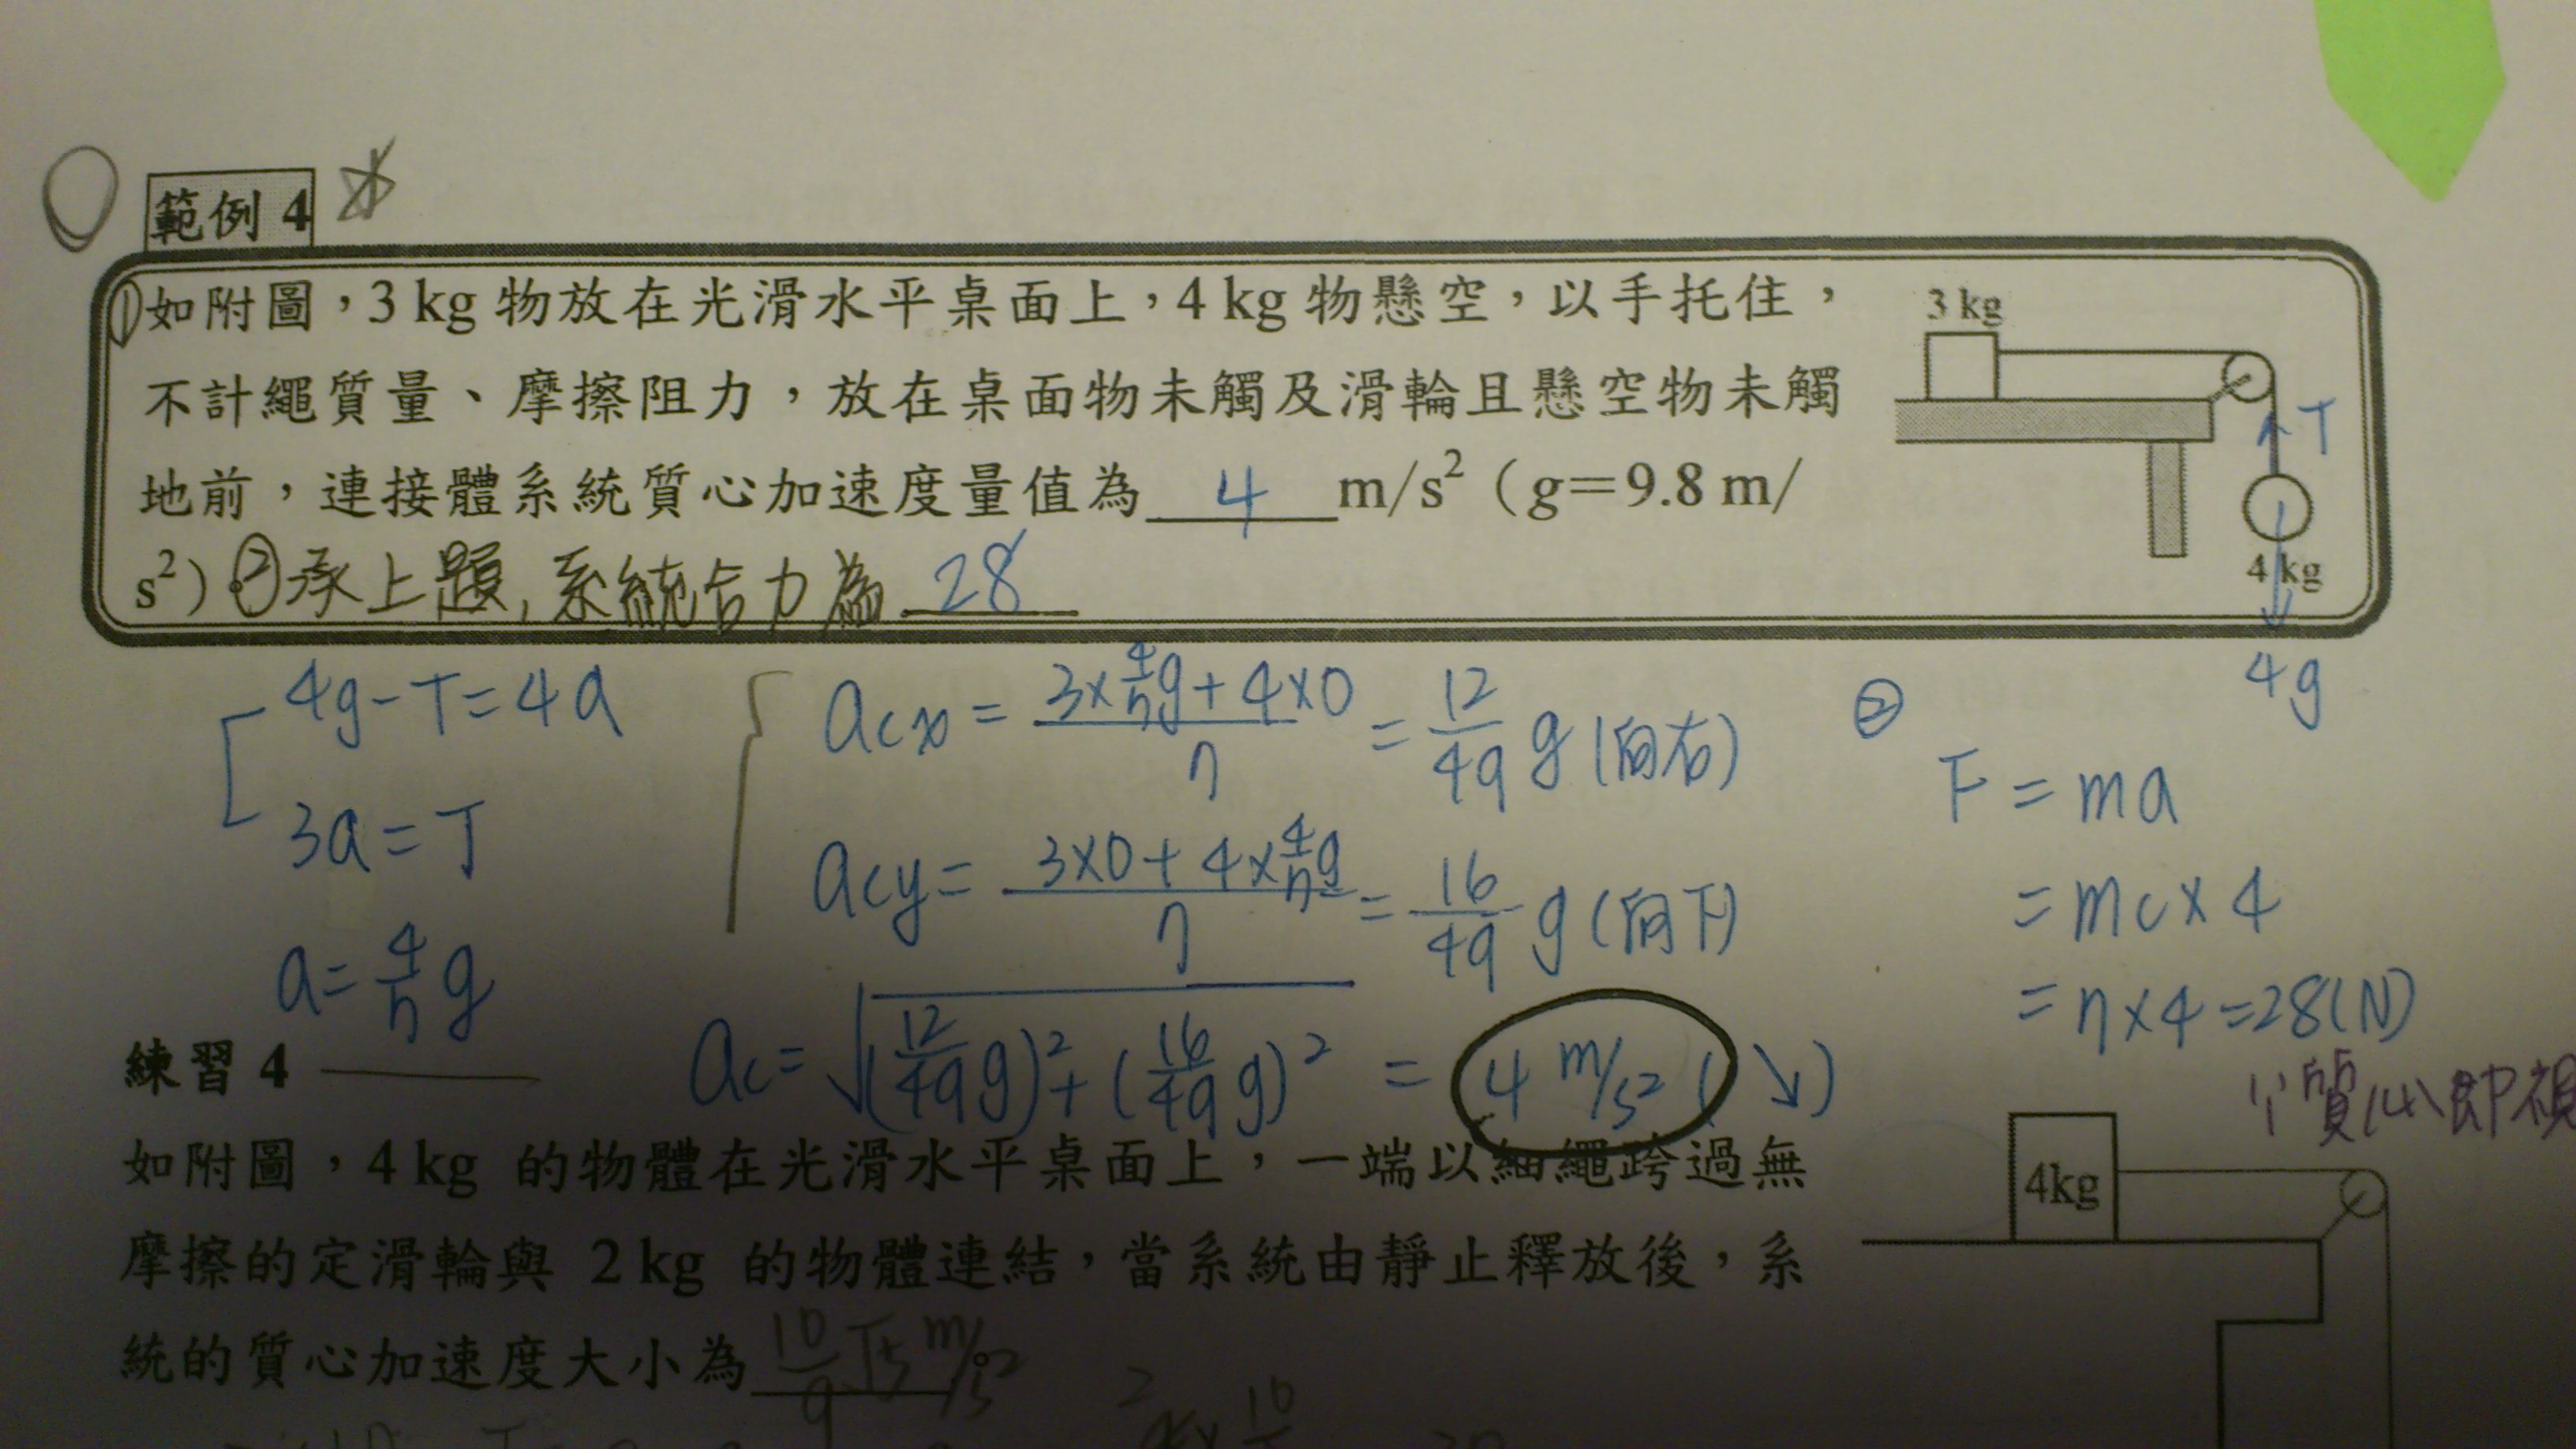 範例 4
①如附圖，3 kg 物放在光滑水平桌面上，4 kg 物懸空，以手托住，
不計繩質量、摩擦阻力，放在桌面物未觸及滑輪且懸空物未觸
地前，連接體系統質心加速度量值為 4 m/s²（g＝9.8 m/
s²）。②承上題，系統合力為 28
3 kg
T
4 kg
4g
4g-T=4a
3a=T
a=4/7 g
acx = (3×4/7g+4×0)/7 = 12/49 g (向右)
acy = (3×0+4×4/7g)/7 = 16/49 g (向下)
ac = √((12/49 g)²+(16/49 g)²) = 4 m/s² (↘)
②
F = ma
= mc×4
= 7×4=28(N)
質心即視
練習 4
如附圖，4 kg 的物體在光滑水平桌面上，一端以細繩跨過無
摩擦的定滑輪與 2 kg 的物體連結，當系統由靜止釋放後，系
統的質心加速度大小為 10/9 √5 m/s²
4kg